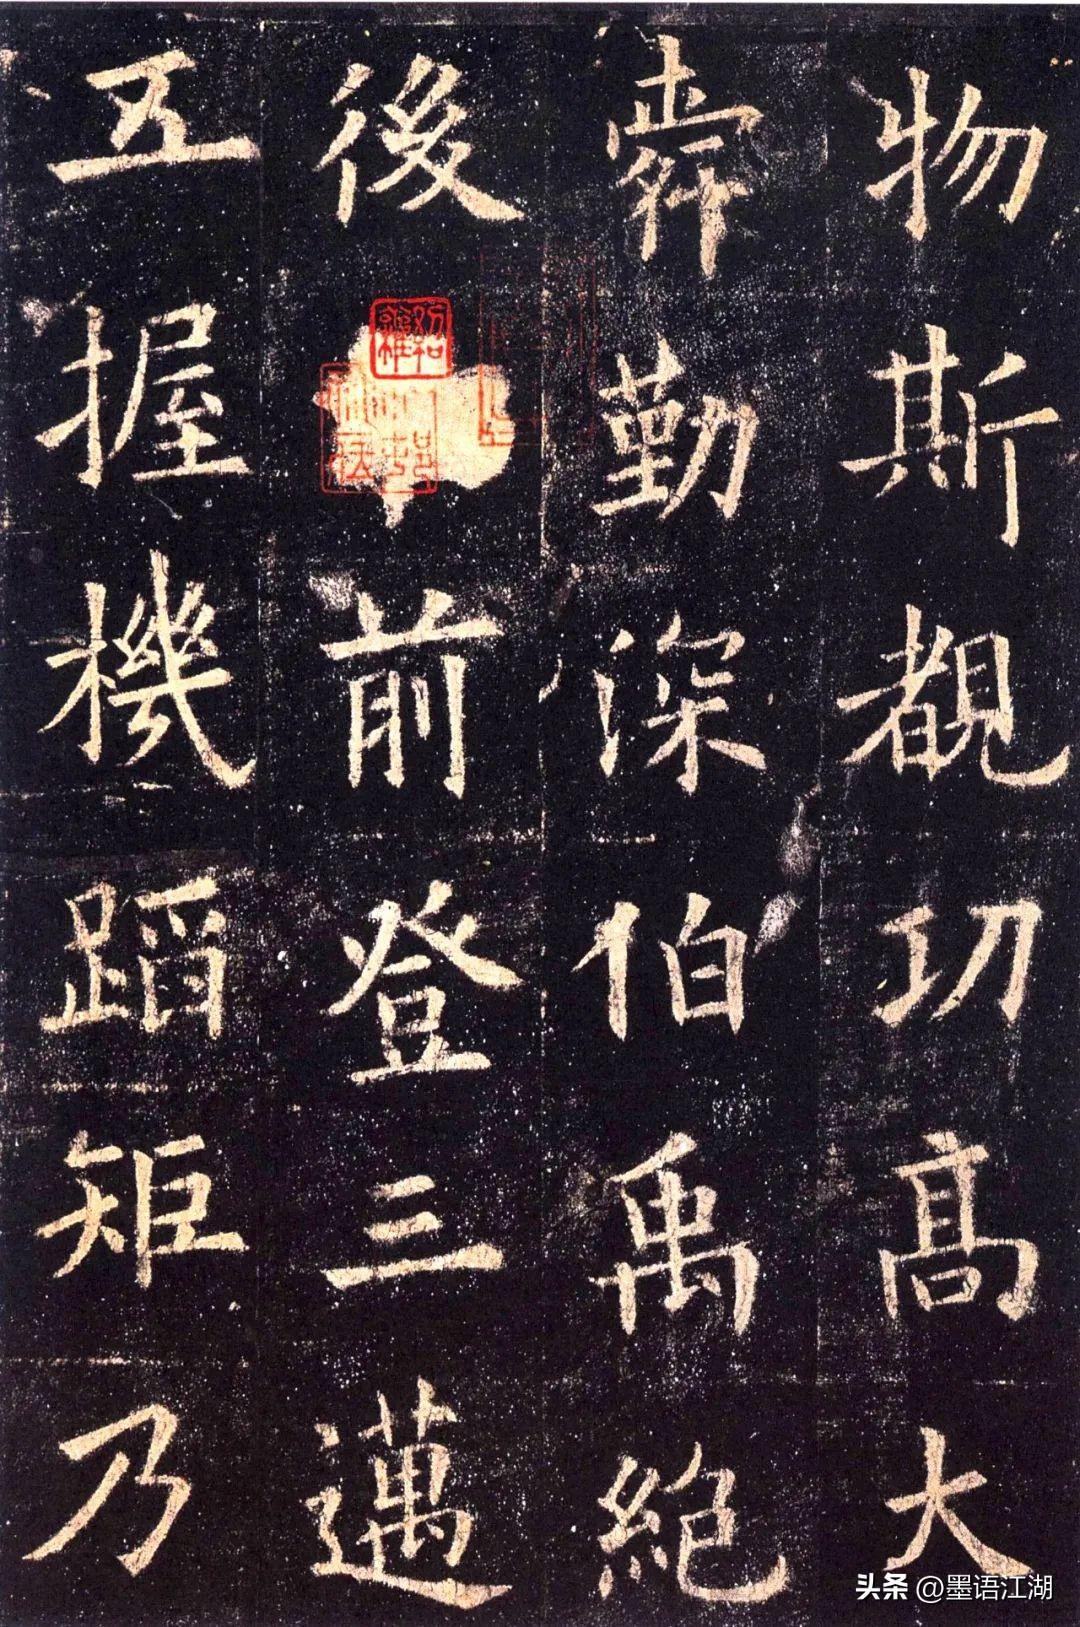 物斯覩功髙大
舜勤深伯禹絶
後前登三邁
五握機蹈矩乃
头条 @墨语江湖